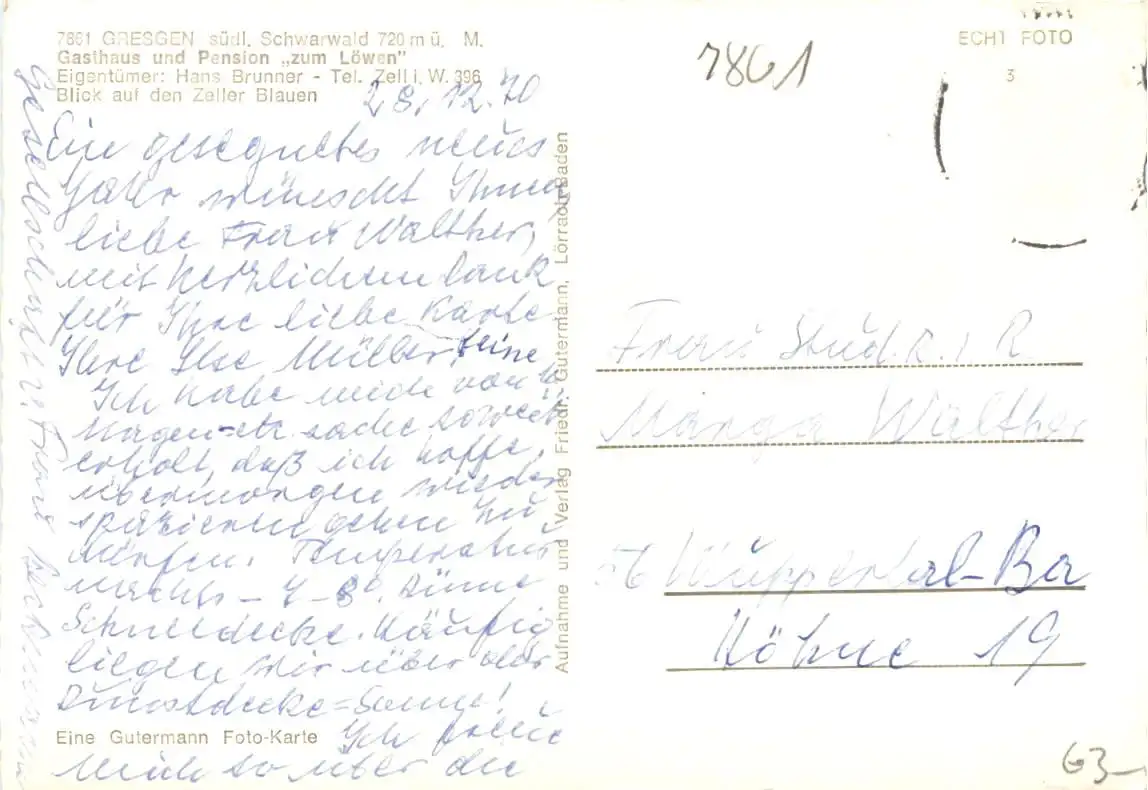 7861 GRESGEN südl. Schwarwald 720 m ü. M.
Gasthaus und Pension „zum Löwen"
Eigentümer: Hans Brunner - Tel. Zell i. W. 396
Blick auf den Zeller Blauen
28.12.70
Eine gesegnetes neues
Jahr wünscht Ihnen
liebe Frau Walther,
mit herzlichem Dank
für Ihre liebe Karte
Ihre Ilse Müller
Ich habe mich von
Magen-etc. sache soweit
erholt, daß ich hoffe,
übermorgen wieder
spazieren gehen zu
dürfen. Temperatur
nachts - 7-8°. Dünne
Schneedecke. Häufig
liegen wir über der
Dunstdecke = Sonne!
Ich freue
mich so über die
Gesellschaft Frau
Eine Gutermann Foto-Karte
Aufnahme und Verlag Friedr. Gutermann, Lörrach/Baden
7861
ECHT FOTO
3
Frau Stud.R. i R
Marga Walther
56 Wuppertal-Ba
Höhne 19
63-